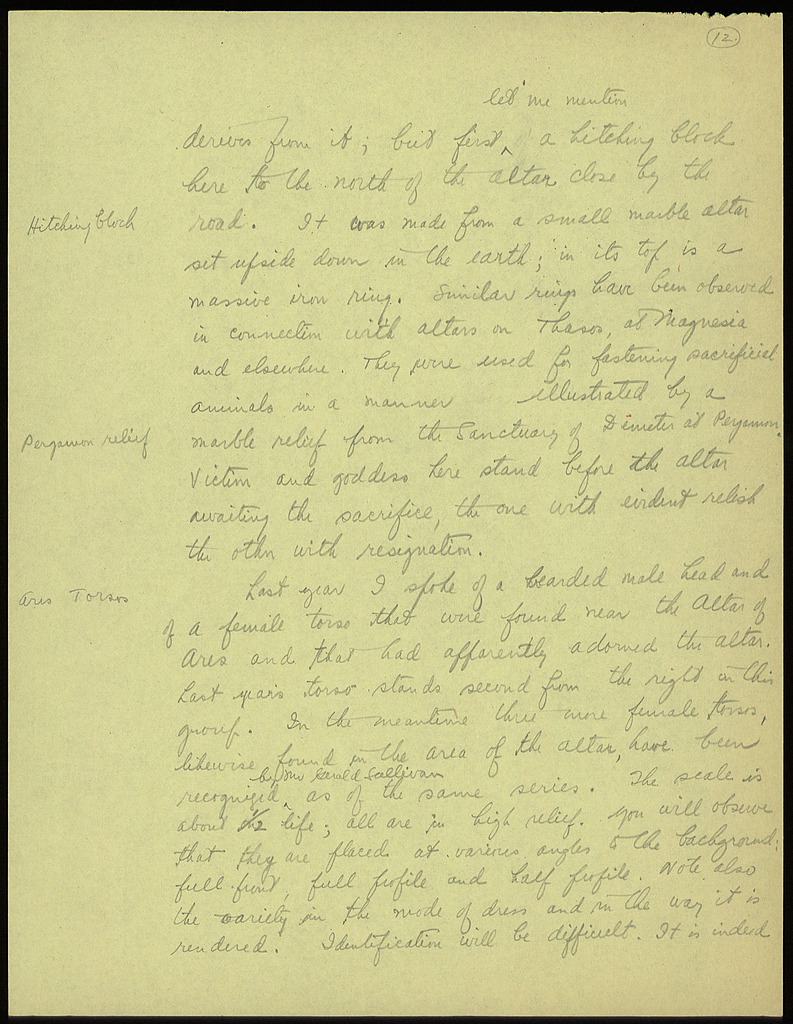 12.
let me mention
derives from it; but first ^ a hitching block
here to the north of the altar close by the
Hitching block
road. It was made from a small marble altar
set upside down in the earth; in its top is a
massive iron ring. Similar rings have been observed
in connection with altars on Thasos, at Magnesia
and elsewhere. They were used for fastening sacrificial
animals in a manner illustrated by a
Pergamon relief
marble relief from the Sanctuary of Demeter at Pergamon.
Victim and goddess here stand before the altar
awaiting the sacrifice, the one with evident relish
the other with resignation.
Ares Torsos
Last year I spoke of a bearded male head and
of a female torso that were found near the Altar of
Ares and that had apparently adorned the altar.
Last year's torso stands second from the right in this
group. In the meantime three more female torsos,
likewise found in the area of the altar, have been
by Mr Gerald Sullivan
recognized ^ as of the same series. The scale is
about 1/2 life; all are in high relief. You will observe
that they are placed at various angles to the background:
full front, full profile and half profile. Note also
the variety in the mode of dress and in the way it is
rendered. Identification will be difficult. It is indeed